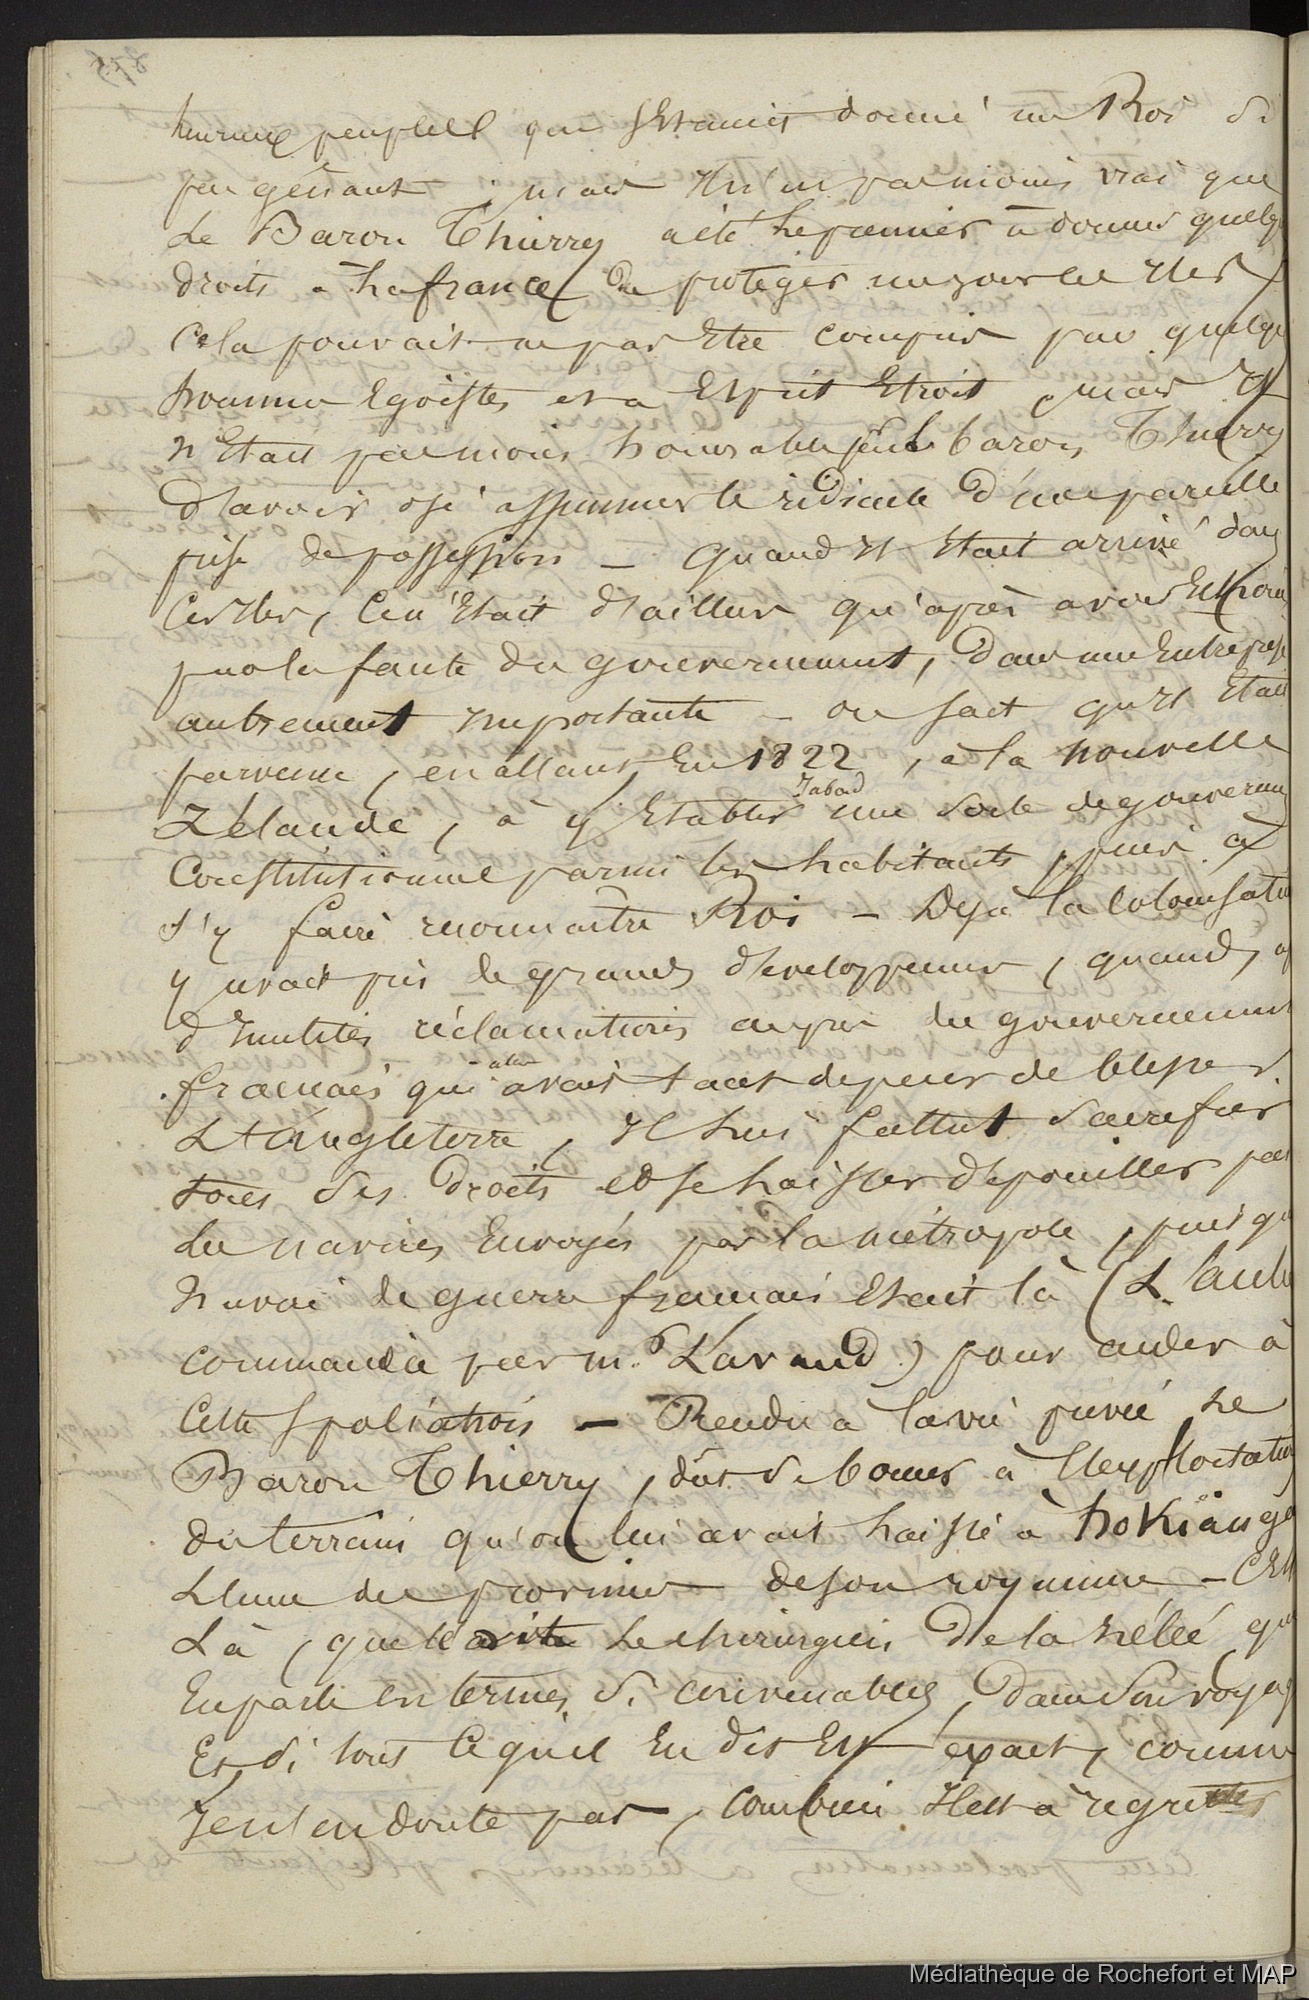 heureux peuples que s'etaient donné un Roi si
peu gênant ; mais il n'en est pas moins vrai que
Le Baron Thierry a été le premier à donner quelq
droits à la france de protéger un jour les Iles
Cela pouvait ne pas Etre compris par quelq
hommes Egoïstes et a Esprit Etroit, mais Il
n'Etait pas moins honorable pour le baron Thierry
d'avoir osé assumer le ridicule d'une pareille
prise de possession – quand Il Etait arrivé dans
ces Iles, ce n'Etait d'ailleur qu'après avoir Echoué
par la faute du gouvernement, dans une Entreprise
autrement Importante – on sait qu'Il Etait
parvenu, en allant, En 1822, à la nouvelle
Zélande, à y Etablir d'abord une sorte de gouvernem
Constitutionnel parmi les habitants, puis à
s'y faire reconnaitre Roi – Déjà la Colonisatio
y avait pris de grands developpemens, quand, a
d'Inutiles réclamations auprès du gouvernement
français qui avait alors tant de peur de blesser
L'Angleterre, Il lui fallut sacrifier
tous ses droits et se laisser dépouiller par
des navires Envoyés par la métropole, puisqu
navire de guerre français Etait là (L'aube
commandée par m.r Lavaud) pour aider à
Cette spoliation – Rendu à la vie privée Le
Baron Thierry, dût se borner à l'exploitation
du terrain qu'on lui avait laissé à hoKiänga
L'une des provinces de son royaume – C'Est
Là, que l'a visité Le chirurgien de la hélée qui
En parle en termes si convenables, dans son voyag
Et si tout ce qu'il En dit Est exact, comme
Je n'en doute pas, Combien Il est à regretter
Médiathèque de Rochefort et MAP